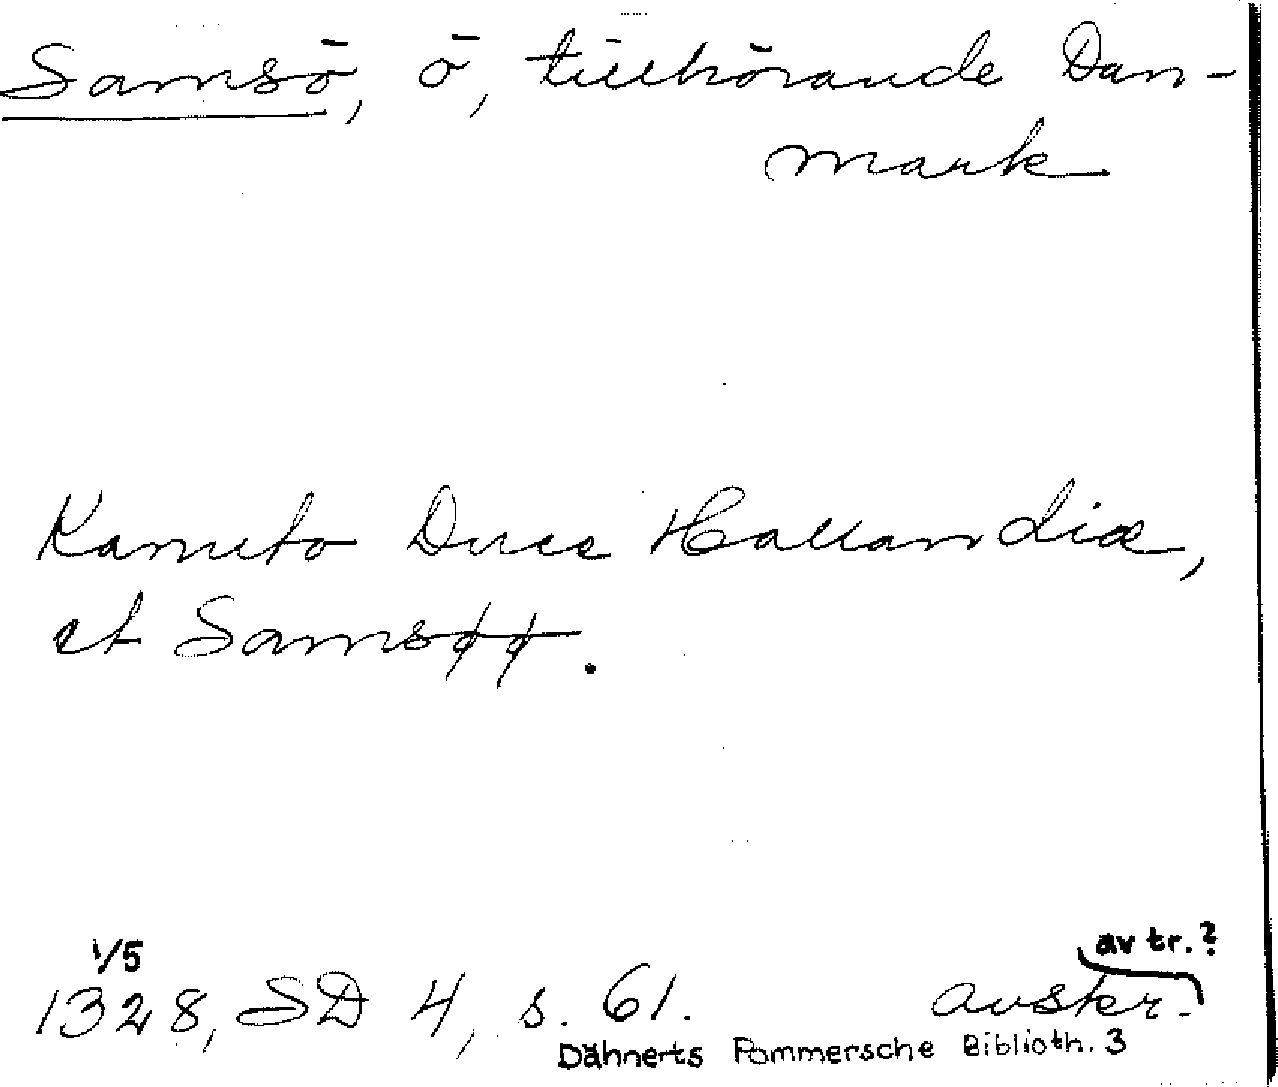 Samsö, ö, tillhörande Dan-
mark
Kanuto Duce Hallandiæ,
et Samsøø.
1/5
av tr.?
1328, SD 4, s. 61. avskr.
Dähnerts Pommersche Biblioth. 3